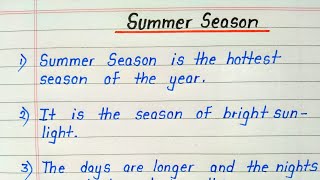 Summer Season
1) Summer Season is the hottest
season of the year.
2) It is the season of bright sun-
light.
3) The days are longer and the nights